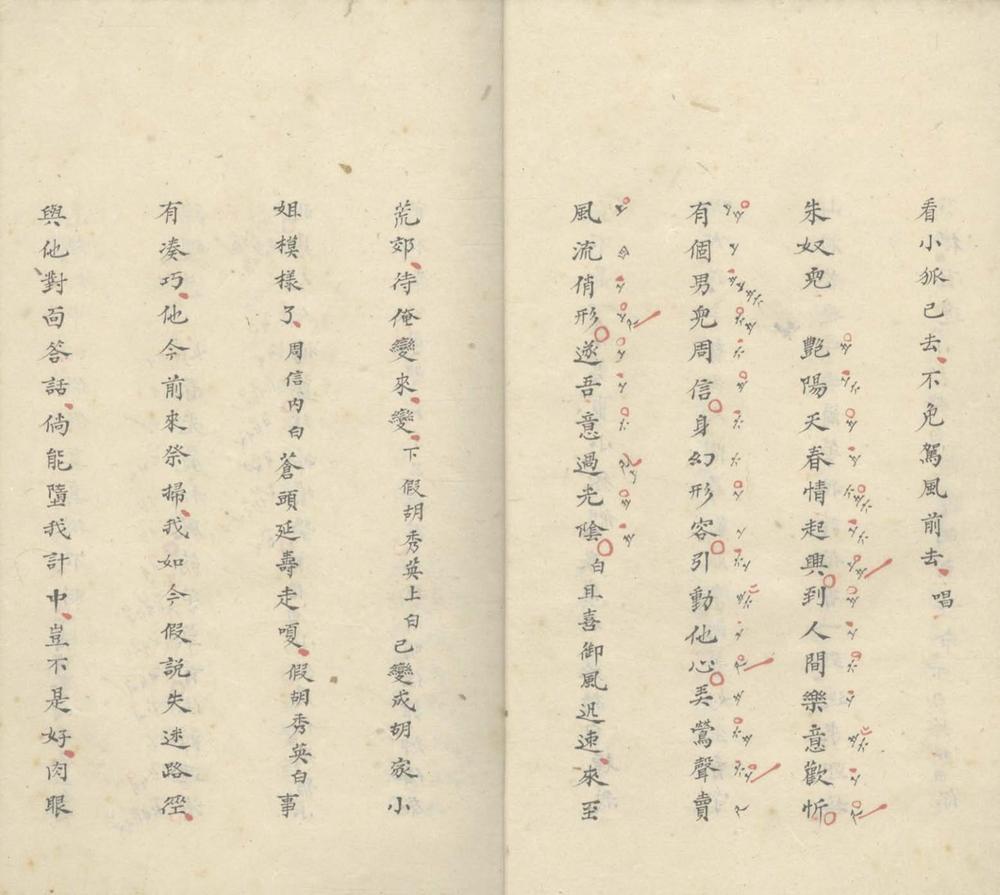 看小狐已去不免駕風前去唱
朱奴兒 艷陽天春情起興到人間樂意歡忻
有個男兒周信身幻形容引動他心美鶯聲賣
風流俏形遂吾意過光陰白且喜御風迅速來至
荒郊待俺變來變下假胡秀英上白已變成胡家小
姐模樣了周信內白蒼頭延壽走嗄假胡秀英白事
有凑巧他今前來祭掃我如今假說失迷路徑
與他對面答話倘能墮我計中豈不是好肉眼